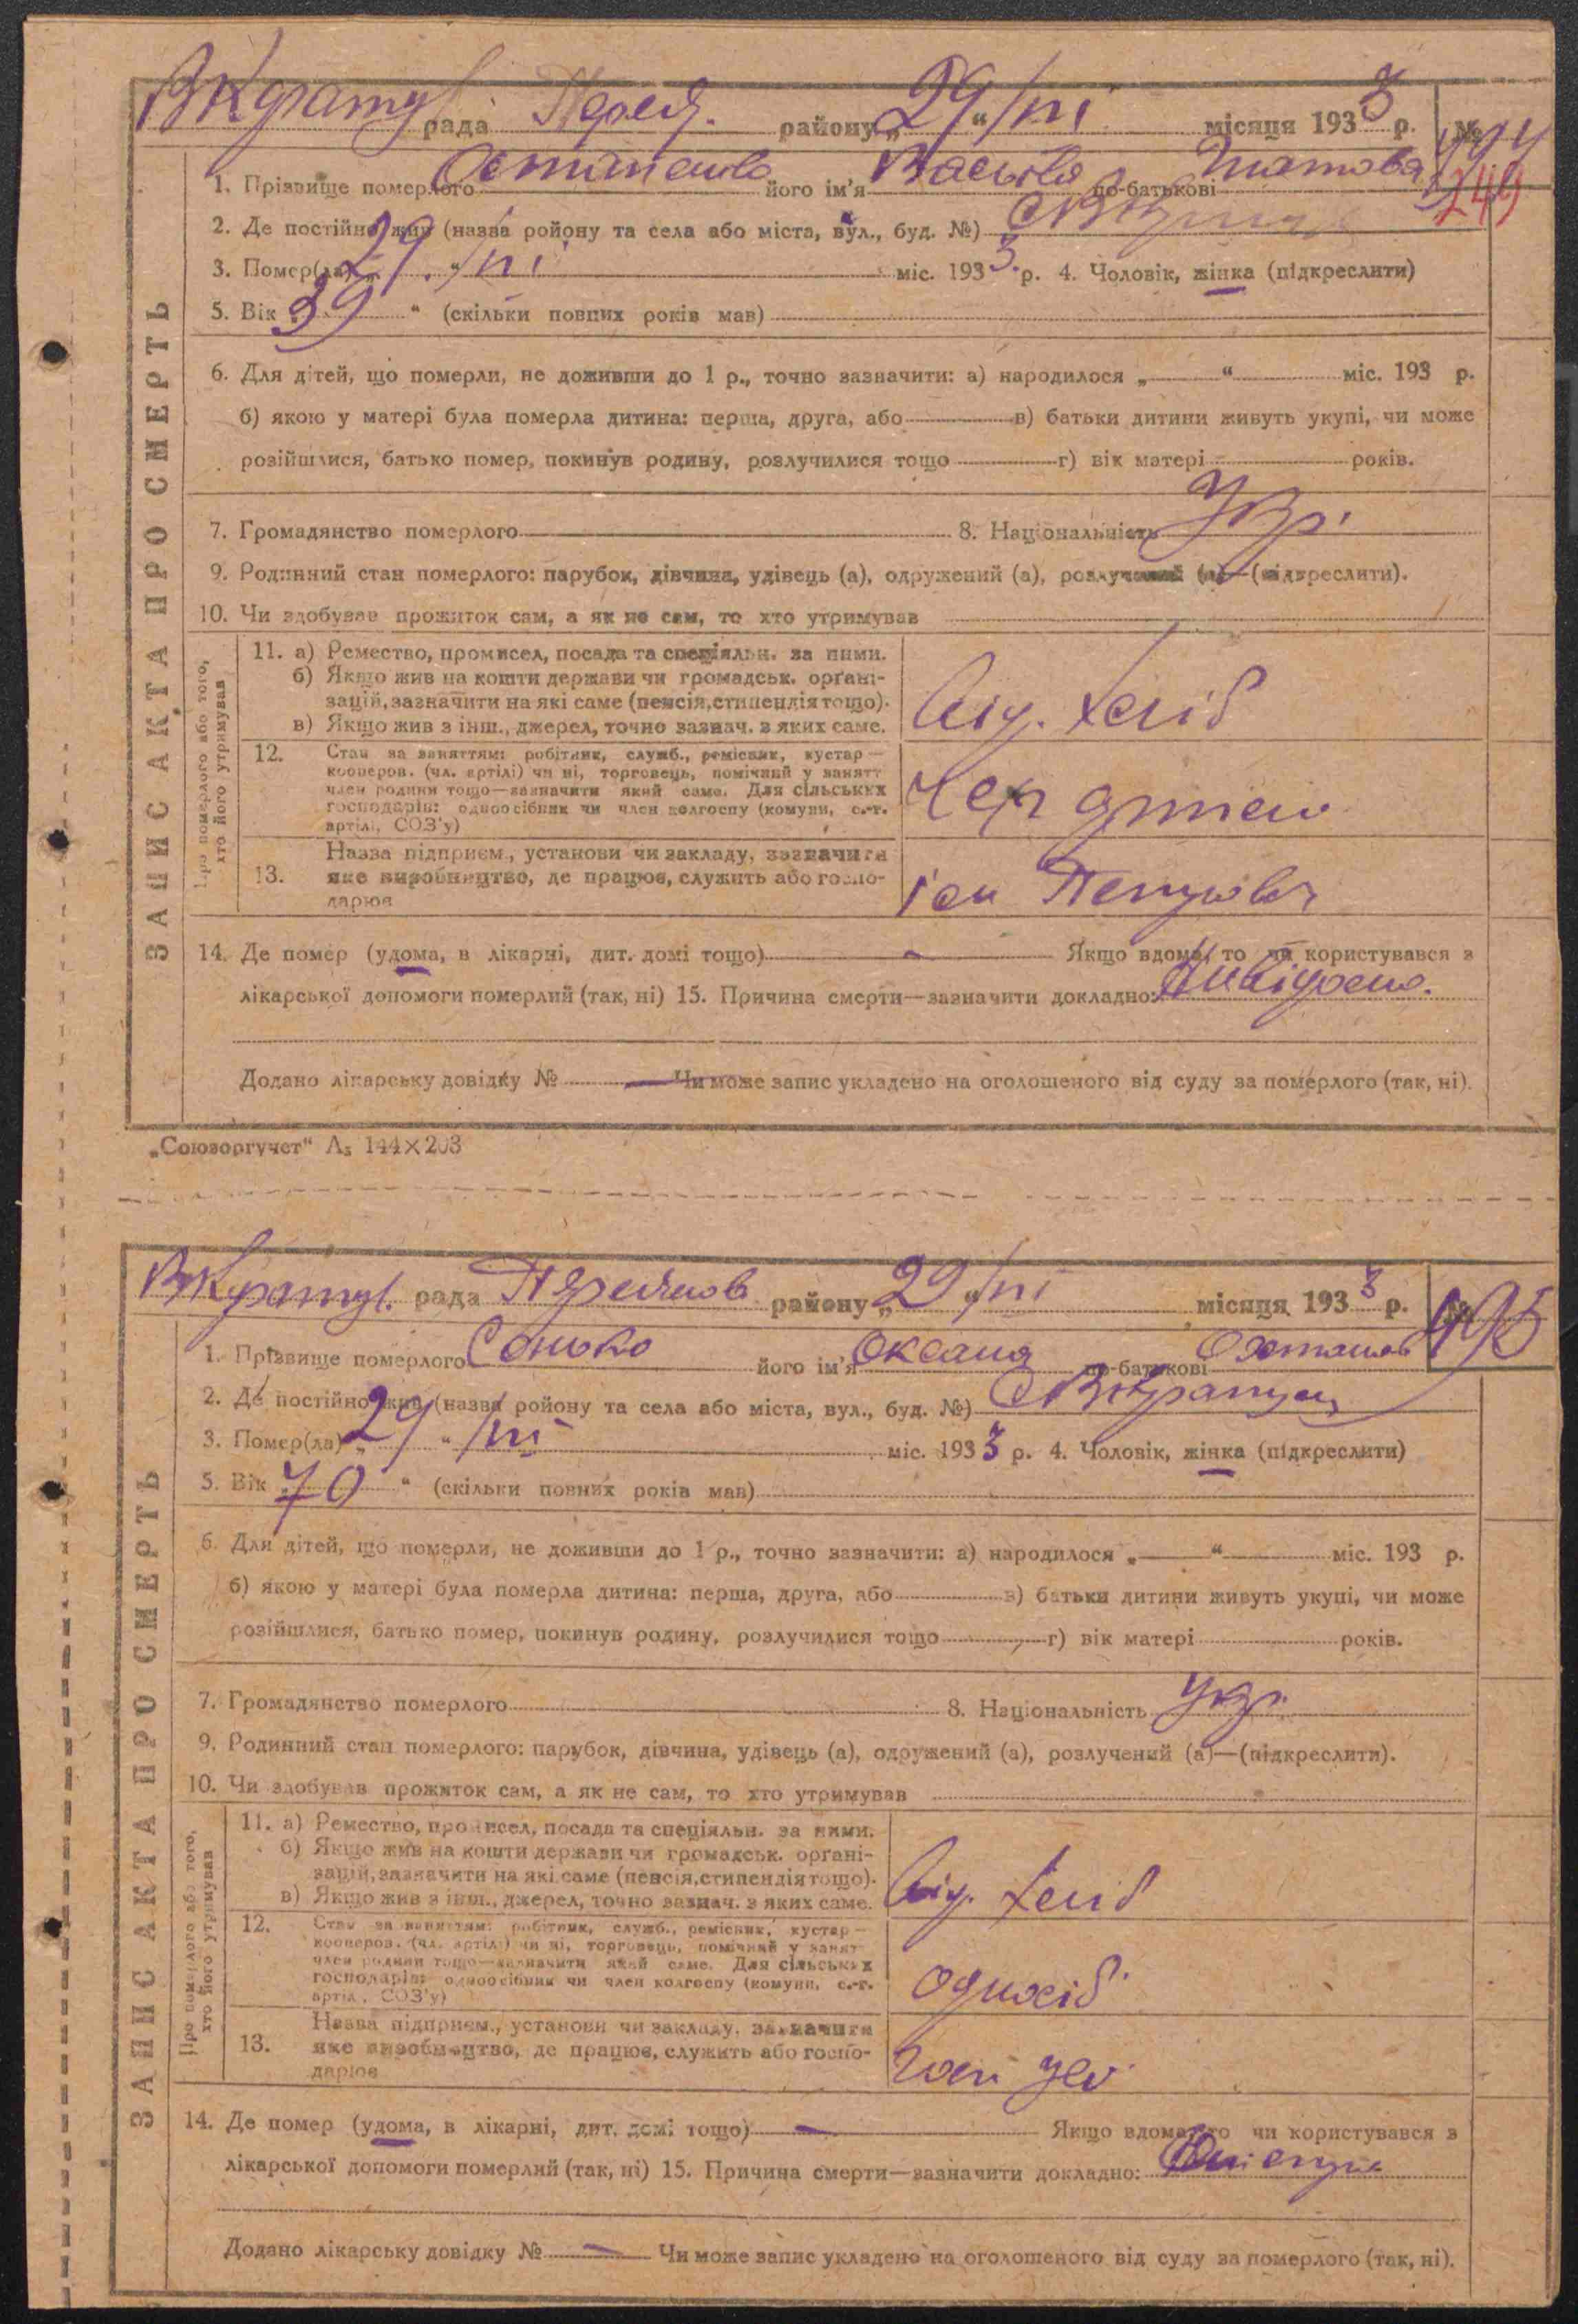 рада Переял. району „29“ /III місяця 1933 р. №
194
249
1. Прізвище померлого його ім'я по-батькові
2. Де постійно жив (назва району та села або міста, вул., буд. №)
3. Помер(ла) „29“ /III міс. 1933 р. 4. Чоловік, жінка (підкреслити)
5. Вік „39“ (скільки повних років мав)
6. Для дітей, що померли, не доживши до 1 р., точно зазначити: а) народилося „ “ міс. 193 р.
б) якою у матері була померла дитина: перша, друга, або в) батьки дитини живуть укупі, чи може
розійшлися, батько помер, покинув родину, розлучилися тощо г) вік матері років.
7. Громадянство померлого 8. Національність Укр.
9. Родинний стан померлого: парубок, дівчина, удівець (а), одружений (а), розлучений (а)—(підкреслити).
10. Чи здобував прожиток сам, а як не сам, то хто утримував
ЗАПИС АКТА ПРО СМЕРТЬ
Про померлого або того, хто його утримував
11. а) Ремество, промисел, посада та спеціяльн. за ними.
б) Якщо жив на кошти держави чи громадськ. органі-
зацій, зазначити на які саме (пенсія, стипендія тощо).
в) Якщо жив з інш., джерел, точно зазнач. з яких саме.
хліб
12. Стан за заняттям: робітник, служб., ремісник, кустар —
кооперов. (чл. артілі) чи ні, торговець, помічний у занятт
член родини тощо—зазначити який саме. Для сільських
господарів: одноосібник чи член колгоспу (комуни, с.-г.
артілі, СОЗ'у)
13. Назва підприєм., установи чи закладу, зазначити
яке виробництво, де працює, служить або госпо-
дарює
14. Де помер (удома, в лікарні, дит. домі тощо) Якщо вдома, то чи користувався з
лікарської допомоги померлий (так, ні) 15. Причина смерти—зазначити докладно:
Додано лікарську довідку № Чи може запис укладено на оголошеного від суду за померлого (так, ні).
„Союзоргучет“ А₅ 144×203
рада району „29“ /III місяця 1933 р. №
195
1. Прізвище померлого Сонько його ім'я Оксана по-батькові
2. Де постійно жив (назва району та села або міста, вул., буд. №)
3. Помер(ла) „29“ /III міс. 1933 р. 4. Чоловік, жінка (підкреслити)
5. Вік „70“ (скільки повних років мав)
6. Для дітей, що померли, не доживши до 1 р., точно зазначити: а) народилося „ “ міс. 193 р.
б) якою у матері була померла дитина: перша, друга, або в) батьки дитини живуть укупі, чи може
розійшлися, батько помер, покинув родину, розлучилися тощо г) вік матері років.
7. Громадянство померлого 8. Національність Укр.
9. Родинний стан померлого: парубок, дівчина, удівець (а), одружений (а), розлучений (а)—(підкреслити).
10. Чи здобував прожиток сам, а як не сам, то хто утримував
ЗАПИС АКТА ПРО СМЕРТЬ
Про померлого або того, хто його утримував
11. а) Ремество, промисел, посада та спеціяльн. за ними.
б) Якщо жив на кошти держави чи громадськ. органі-
зацій, зазначити на які саме (пенсія, стипендія тощо).
в) Якщо жив з інш., джерел, точно зазнач. з яких саме.
хліб
12. Стан за заняттям: робітник, служб., ремісник, кустар —
кооперов. (чл. артілі) чи ні, торговець, помічний у занят
член родини тощо—зазначити який саме. Для сільських
господарів: одноосібник чи член колгоспу (комуни, с.-г.
артіл., СОЗ'у)
одноосіб
13. Назва підприєм., установи чи закладу, зазначити
яке виробництво, де працює, служить або госпо-
дарює
14. Де помер (удома, в лікарні, дит. домі тощо) Якщо вдома, то чи користувався з
лікарської допомоги померлий (так, ні) 15. Причина смерти—зазначити докладно:
Додано лікарську довідку № Чи може запис укладено на оголошеного від суду за померлого (так, ні).